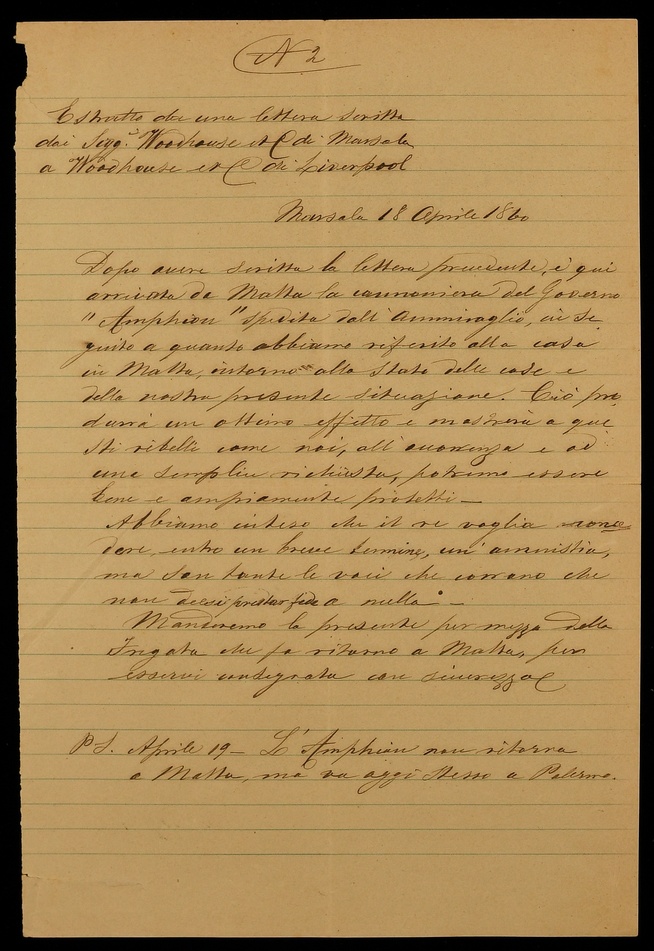 N 2
Estratto da una lettera scritta
dai Sigg.i Woodhouse et C di Marsala
a Woodhouse et C di Liverpool
Marsala 18 Aprile 1860
Dopo avere scritta la lettera precedente, è qui
arrivata da Malta la cannoniera del Governo
"Amphion" spedita dall'Ammiraglio, in se
guito a quanto abbiamo riferito alla casa
in Malta, intorno allo stato delle cose e
della nostra presente situazione. Ciò pro
durrà un ottimo effetto e mostrerà a que
sti ribelli come noi, all'occorrenza e ad
una semplice richiesta, potremo essere
bene e ampiamente protetti —
Abbiamo inteso che il re voglia conce
dere, entro un breve termine, un'amnistia,
ma son tante le voci che corrono che
non devesi prestar fede a nulla. —
Manderemo la presente per mezzo della
Fregata che fa ritorno a Malta, per
esservi consegnata con sicurezza
PS. Aprile 19 — L'Amphion non ritorna
a Malta, ma va oggi stesso a Palermo.